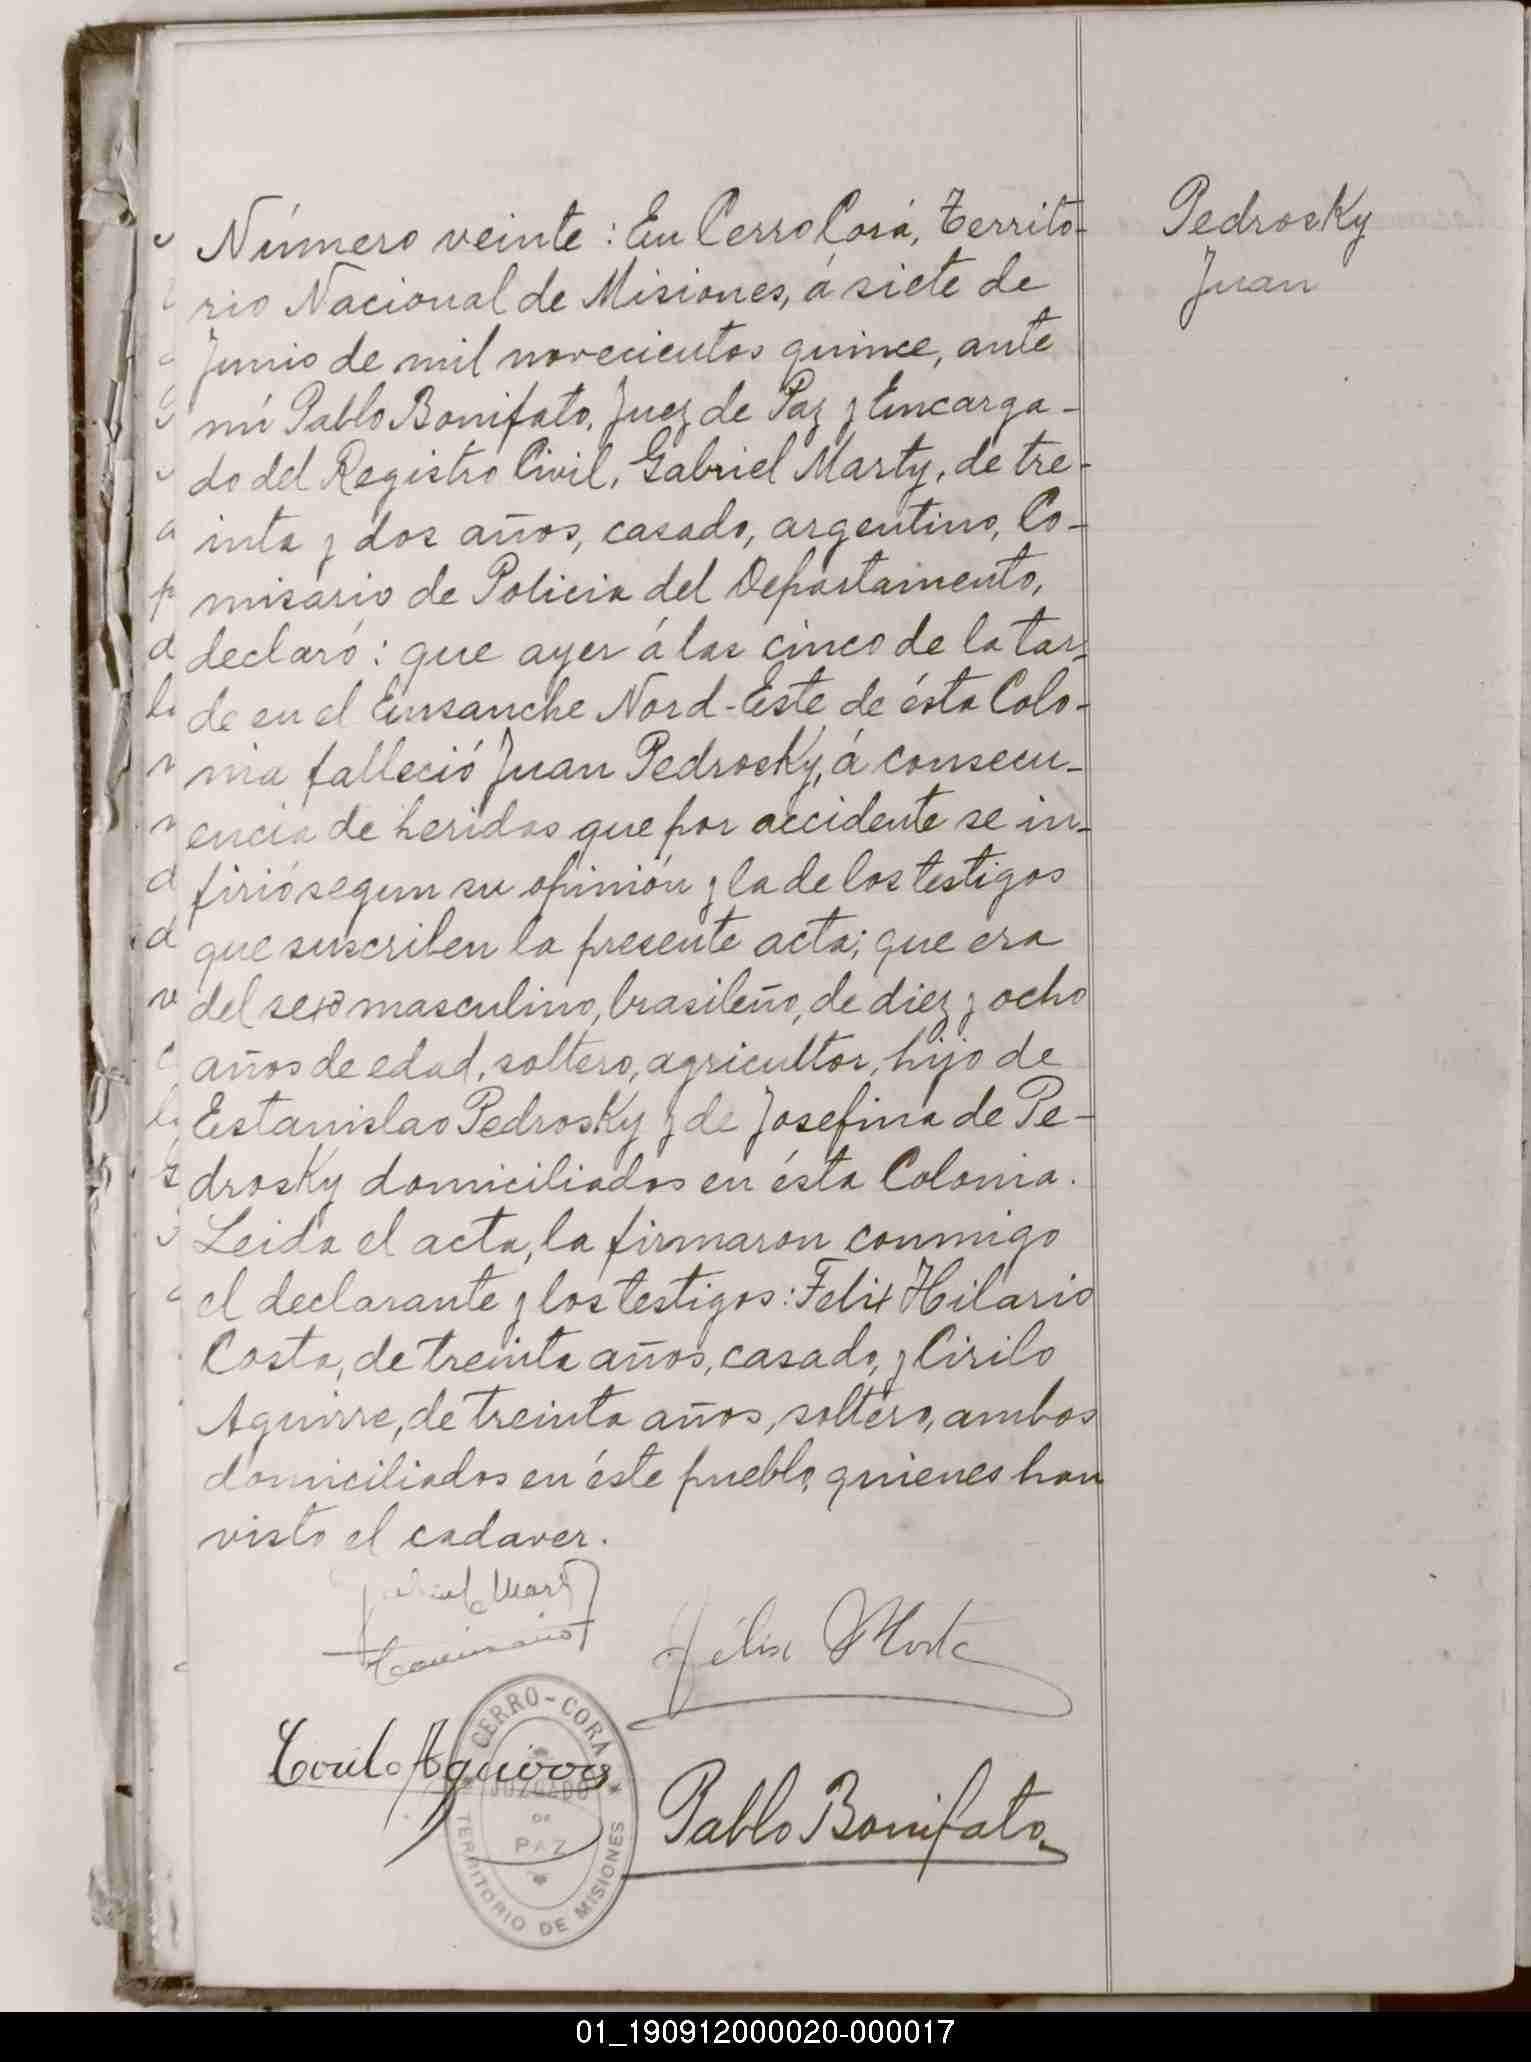 Número veinte: En Cerro Corá, Territo-
rio Nacional de Misiones, á siete de
Junio de mil novecientos quince, ante
mí Pablo Bonifato, Juez de Paz y Encarga-
do del Registro Civil, Gabriel Marty, de tre-
inta y dos años, casado, argentino, Co-
misario de Policia del Departamento,
declaró: que ayer á las cinco de la tar-
de en el Ensanche Nord-Este de ésta Colo-
nia falleció Juan Pedrosky, á consecu-
encia de heridas que por accidente se in-
firió segun su opinión y la de los testigos
que suscriben la presente acta; que era
del sexo masculino, brasileño, de diez y ocho
años de edad, soltero, agricultor, hijo de
Estanislao Pedrosky y de Josefina de Pe-
drosky domiciliados en ésta Colonia.
Leida el acta, la firmaron conmigo
el declarante y los testigos: Felix Hilario
Costa, de treinta años, casado, y Cirilo
Aguirre, de treinta años, soltero, ambos
domiciliados en éste pueblo, quienes han
visto el cadaver.
Pedrosky
Juan
Comisario
Félix
Aguirre
Pablo Bonifato
CERRO-CORA
JUZGADO
DE
PAZ
TERRITORIO DE MISIONES
01_190912000020-000017